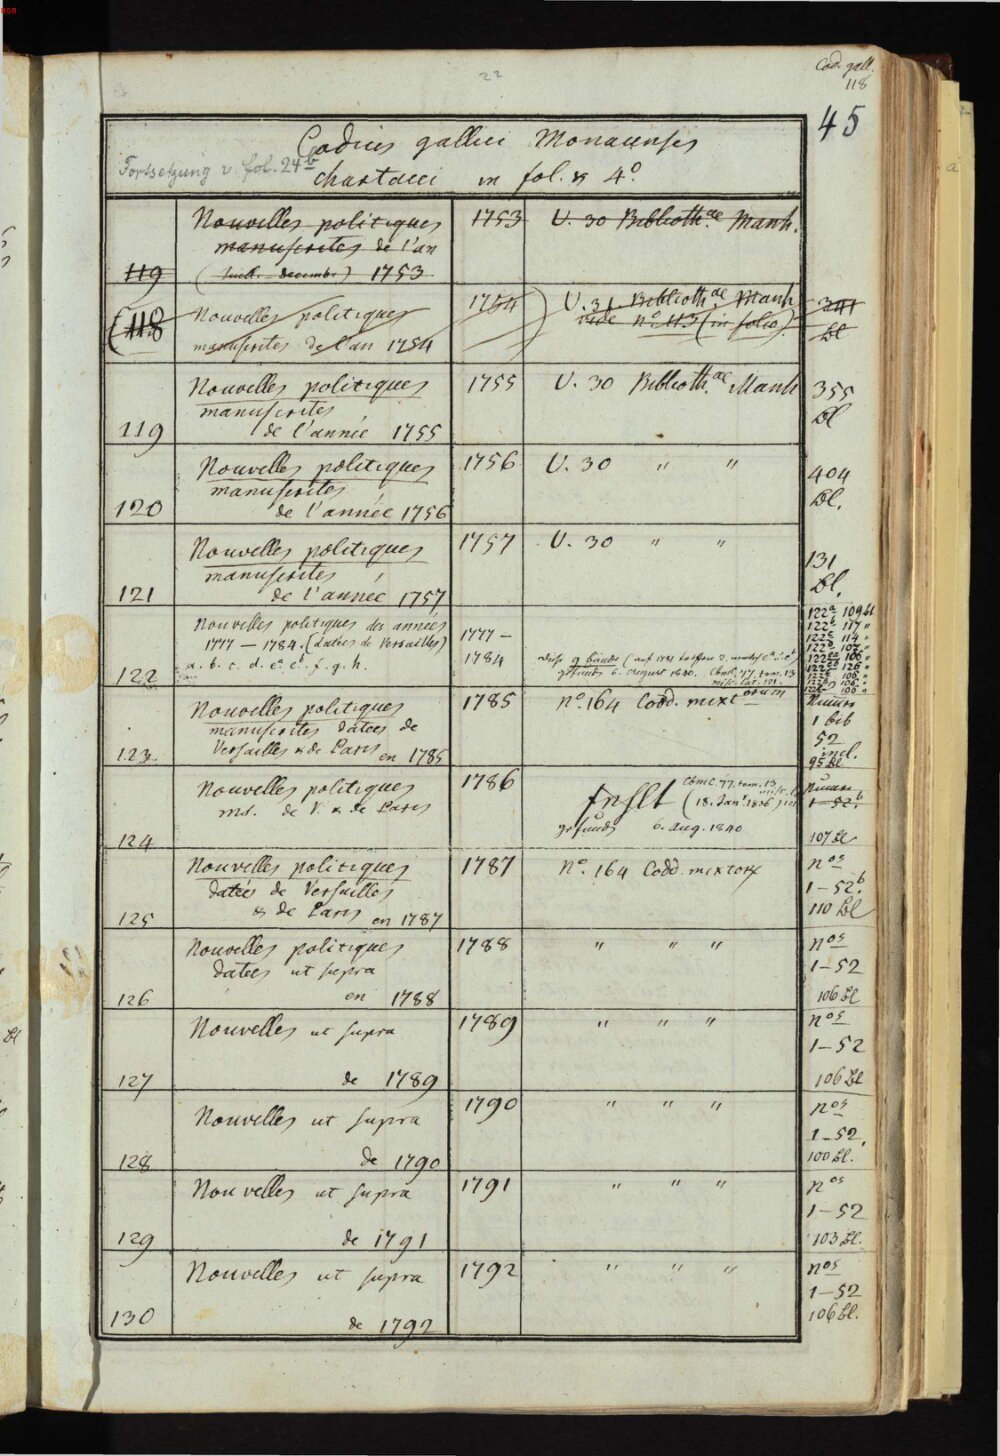 22
Cod. gall.
118
45
Codices gallici Monacenses
Fortsetzung v. fol. 24b
chartacei in fol. & 4°
Nouvelles politiques 1753 U. 30 Biblioth.ae Manh.
manuscrites de l'an
119 (Juill. - decembr.) 1753
Nouvelles politiques 1754 U. 31 Biblioth.ae Manh
(118 vide n° 113 (in folio)
manuscrites de l'an 1754 Bl
Nouvelles politiques 1755 U. 30 Biblioth.ae Manh 355
manuscrites Bl
119 de l'année 1755
Nouvelles politiques 1756 U. 30 " " 404
manuscrites Bl.
120 de l'année 1756
Nouvelles politiques 1757 U. 30 " " 131
manuscrites Bl.
121 de l'année 1757
Nouvelles politiques des années 122a 109 Bl
1777 — 1784. (datées de Versailles) 1777 — 122b 117 "
a. b. c. d. ea eb. f. g. h. 1784 122c 114 "
122 gefunden 6. August 1840. Cbmc. 77. tom. 13
Nouvelles politiques 1785 n° 164 Codd. mixtorum Numero
manuscrites datées de 1 bis
Versailles & de Paris 52 incl.
123. en 1785 95 Bl
Nouvelles politiques 1786 Cbmc. 77. tom. 13 Numero
ms. de V. & de Paris fehlt (18. Jan. 1836) 1-52.b
gefunden 6. Aug. 1840
124 107 Bl
Nouvelles politiques 1787 N° 164 Codd. mixtor nos
datées de Versailles 1-52.b
125 & de Paris en 1787 110 Bl
Nouvelles politiques 1788 " " " nos
datées ut supra 1-52
126 en 1788 106 Bl
Nouvelles ut supra 1789 " " " nos
1-52
127 de 1789 106 Bl
Nouvelles ut supra 1790 " " " nos
1-52.
128 de 1790 100 Bl.
Nouvelles ut supra 1791 " " " nos
1-52
129 de 1791 103 Bl.
Nouvelles ut supra 1792 " " " nos
1-52
130 de 1792 106 Bl.